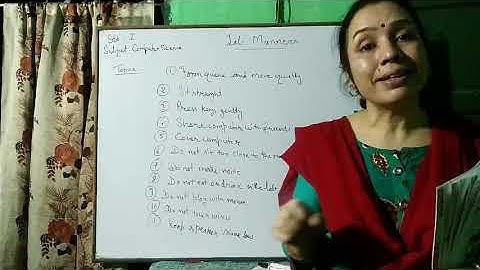 Std I
Lab Manners
Subject Computer Science
Topics
① Form queue and move quietly
② Sit straight
③ Press keys gently
④ Share computer with friends
⑤ Cover computer
⑥ Do not sit too close to the
⑦ Do not make noise
⑧ Do not eat or drink in the lab
⑨ Do not play with mouse
⑩ Do not touch wires
Keep speaker volume low